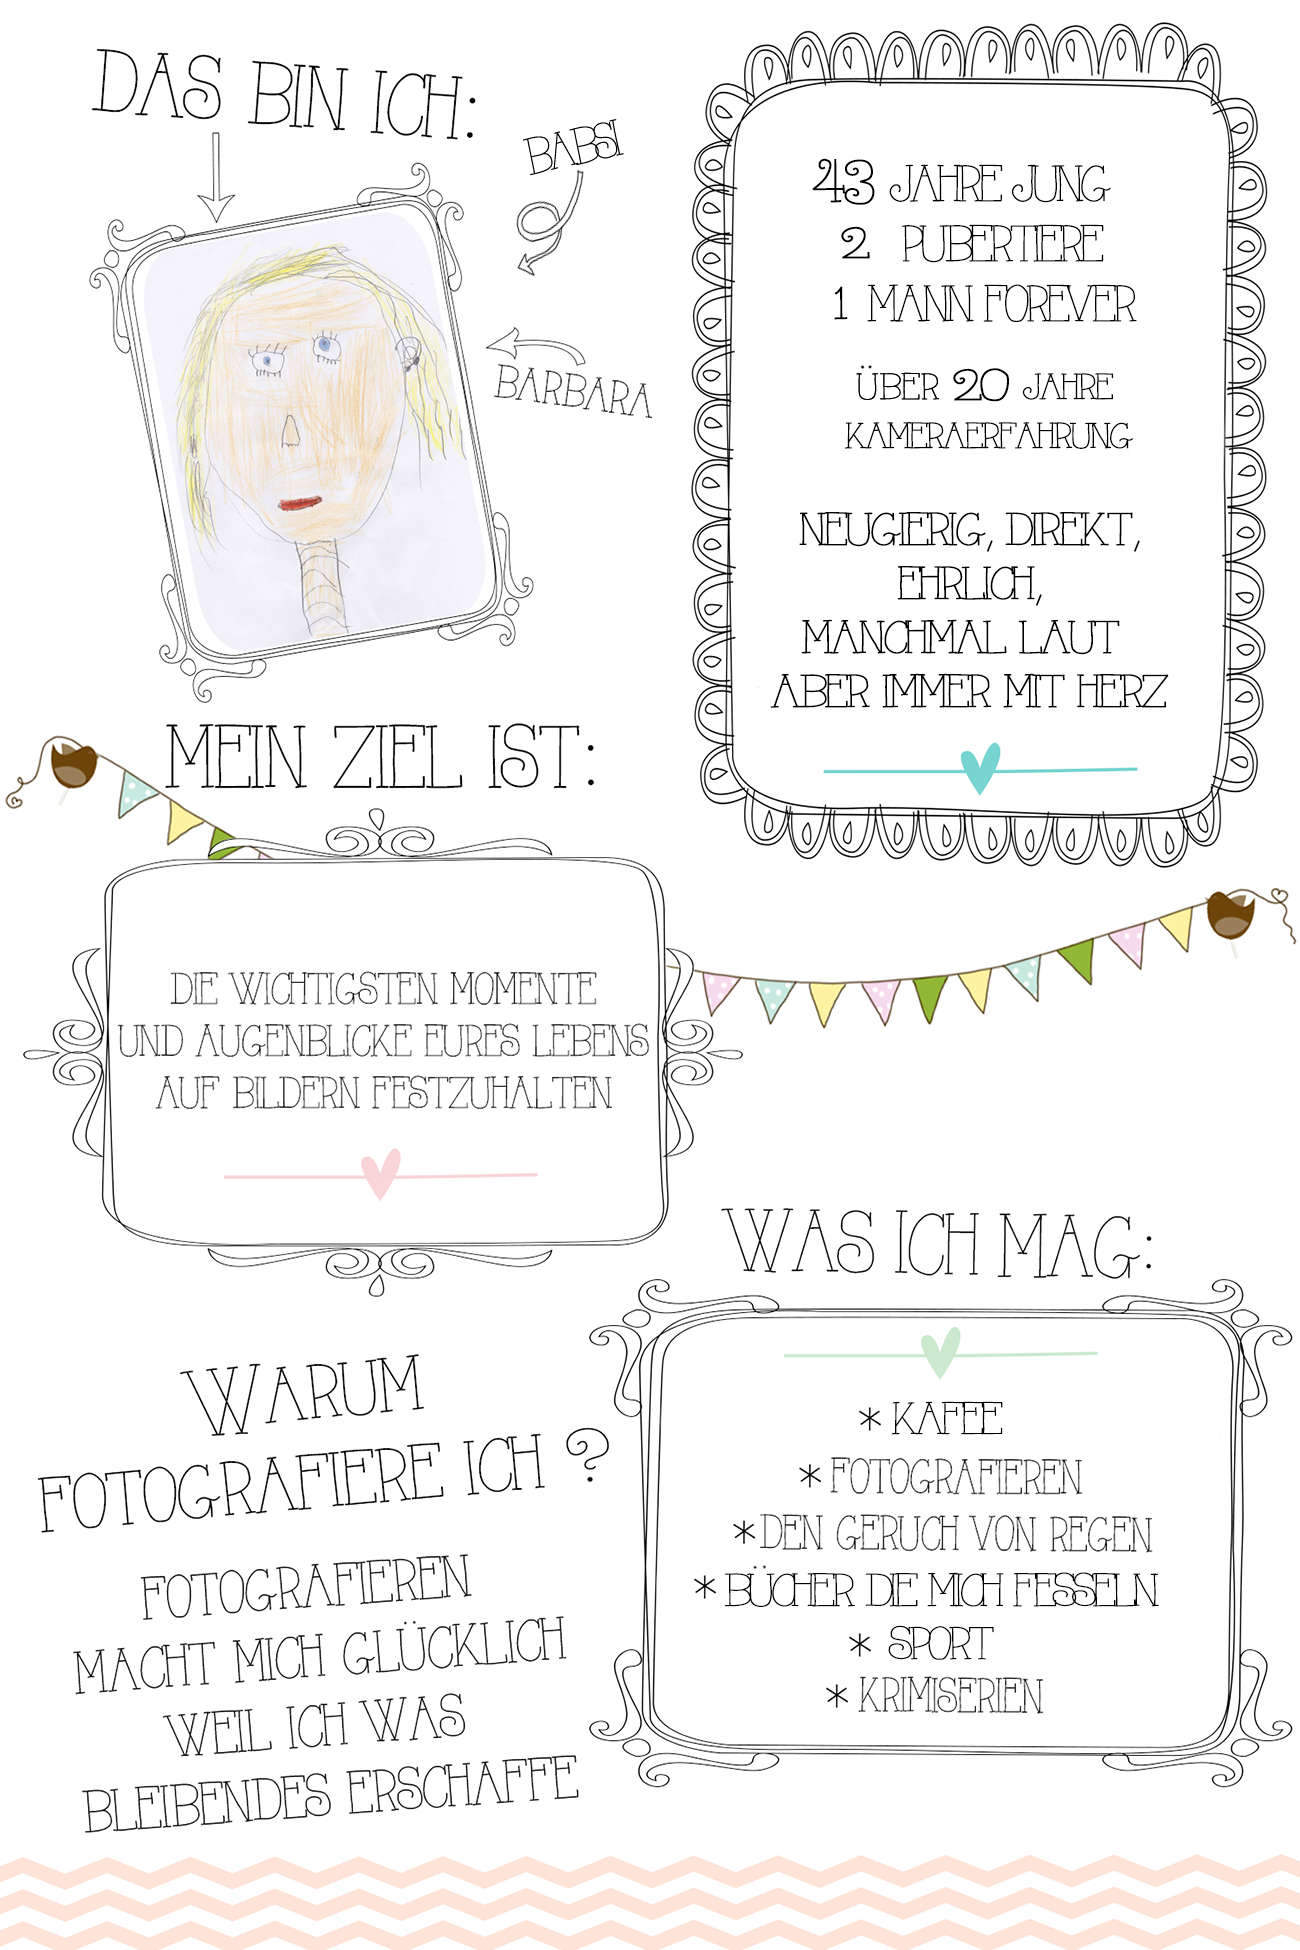 DAS BIN ICH:
BABSI
BARBARA
43 JAHRE JUNG
2 PUBERTIERE
1 MANN FOREVER
ÜBER 20 JAHRE
KAMERAERFAHRUNG
NEUGIERIG, DIREKT,
EHRLICH,
MANCHMAL LAUT
ABER IMMER MIT HERZ
MEIN ZIEL IST:
DIE WICHTIGSTEN MOMENTE
UND AUGENBLICKE EURES LEBENS
AUF BILDERN FESTZUHALTEN
WAS ICH MAG:
* KAFEE
* FOTOGRAFIEREN
*DEN GERUCH VON REGEN
* BÜCHER DIE MICH FESSELN
* SPORT
* KRIMISERIEN
WARUM
FOTOGRAFIERE ICH ?
FOTOGRAFIEREN
MACHT MICH GLÜCKLICH
WEIL ICH WAS
BLEIBENDES ERSCHAFFE